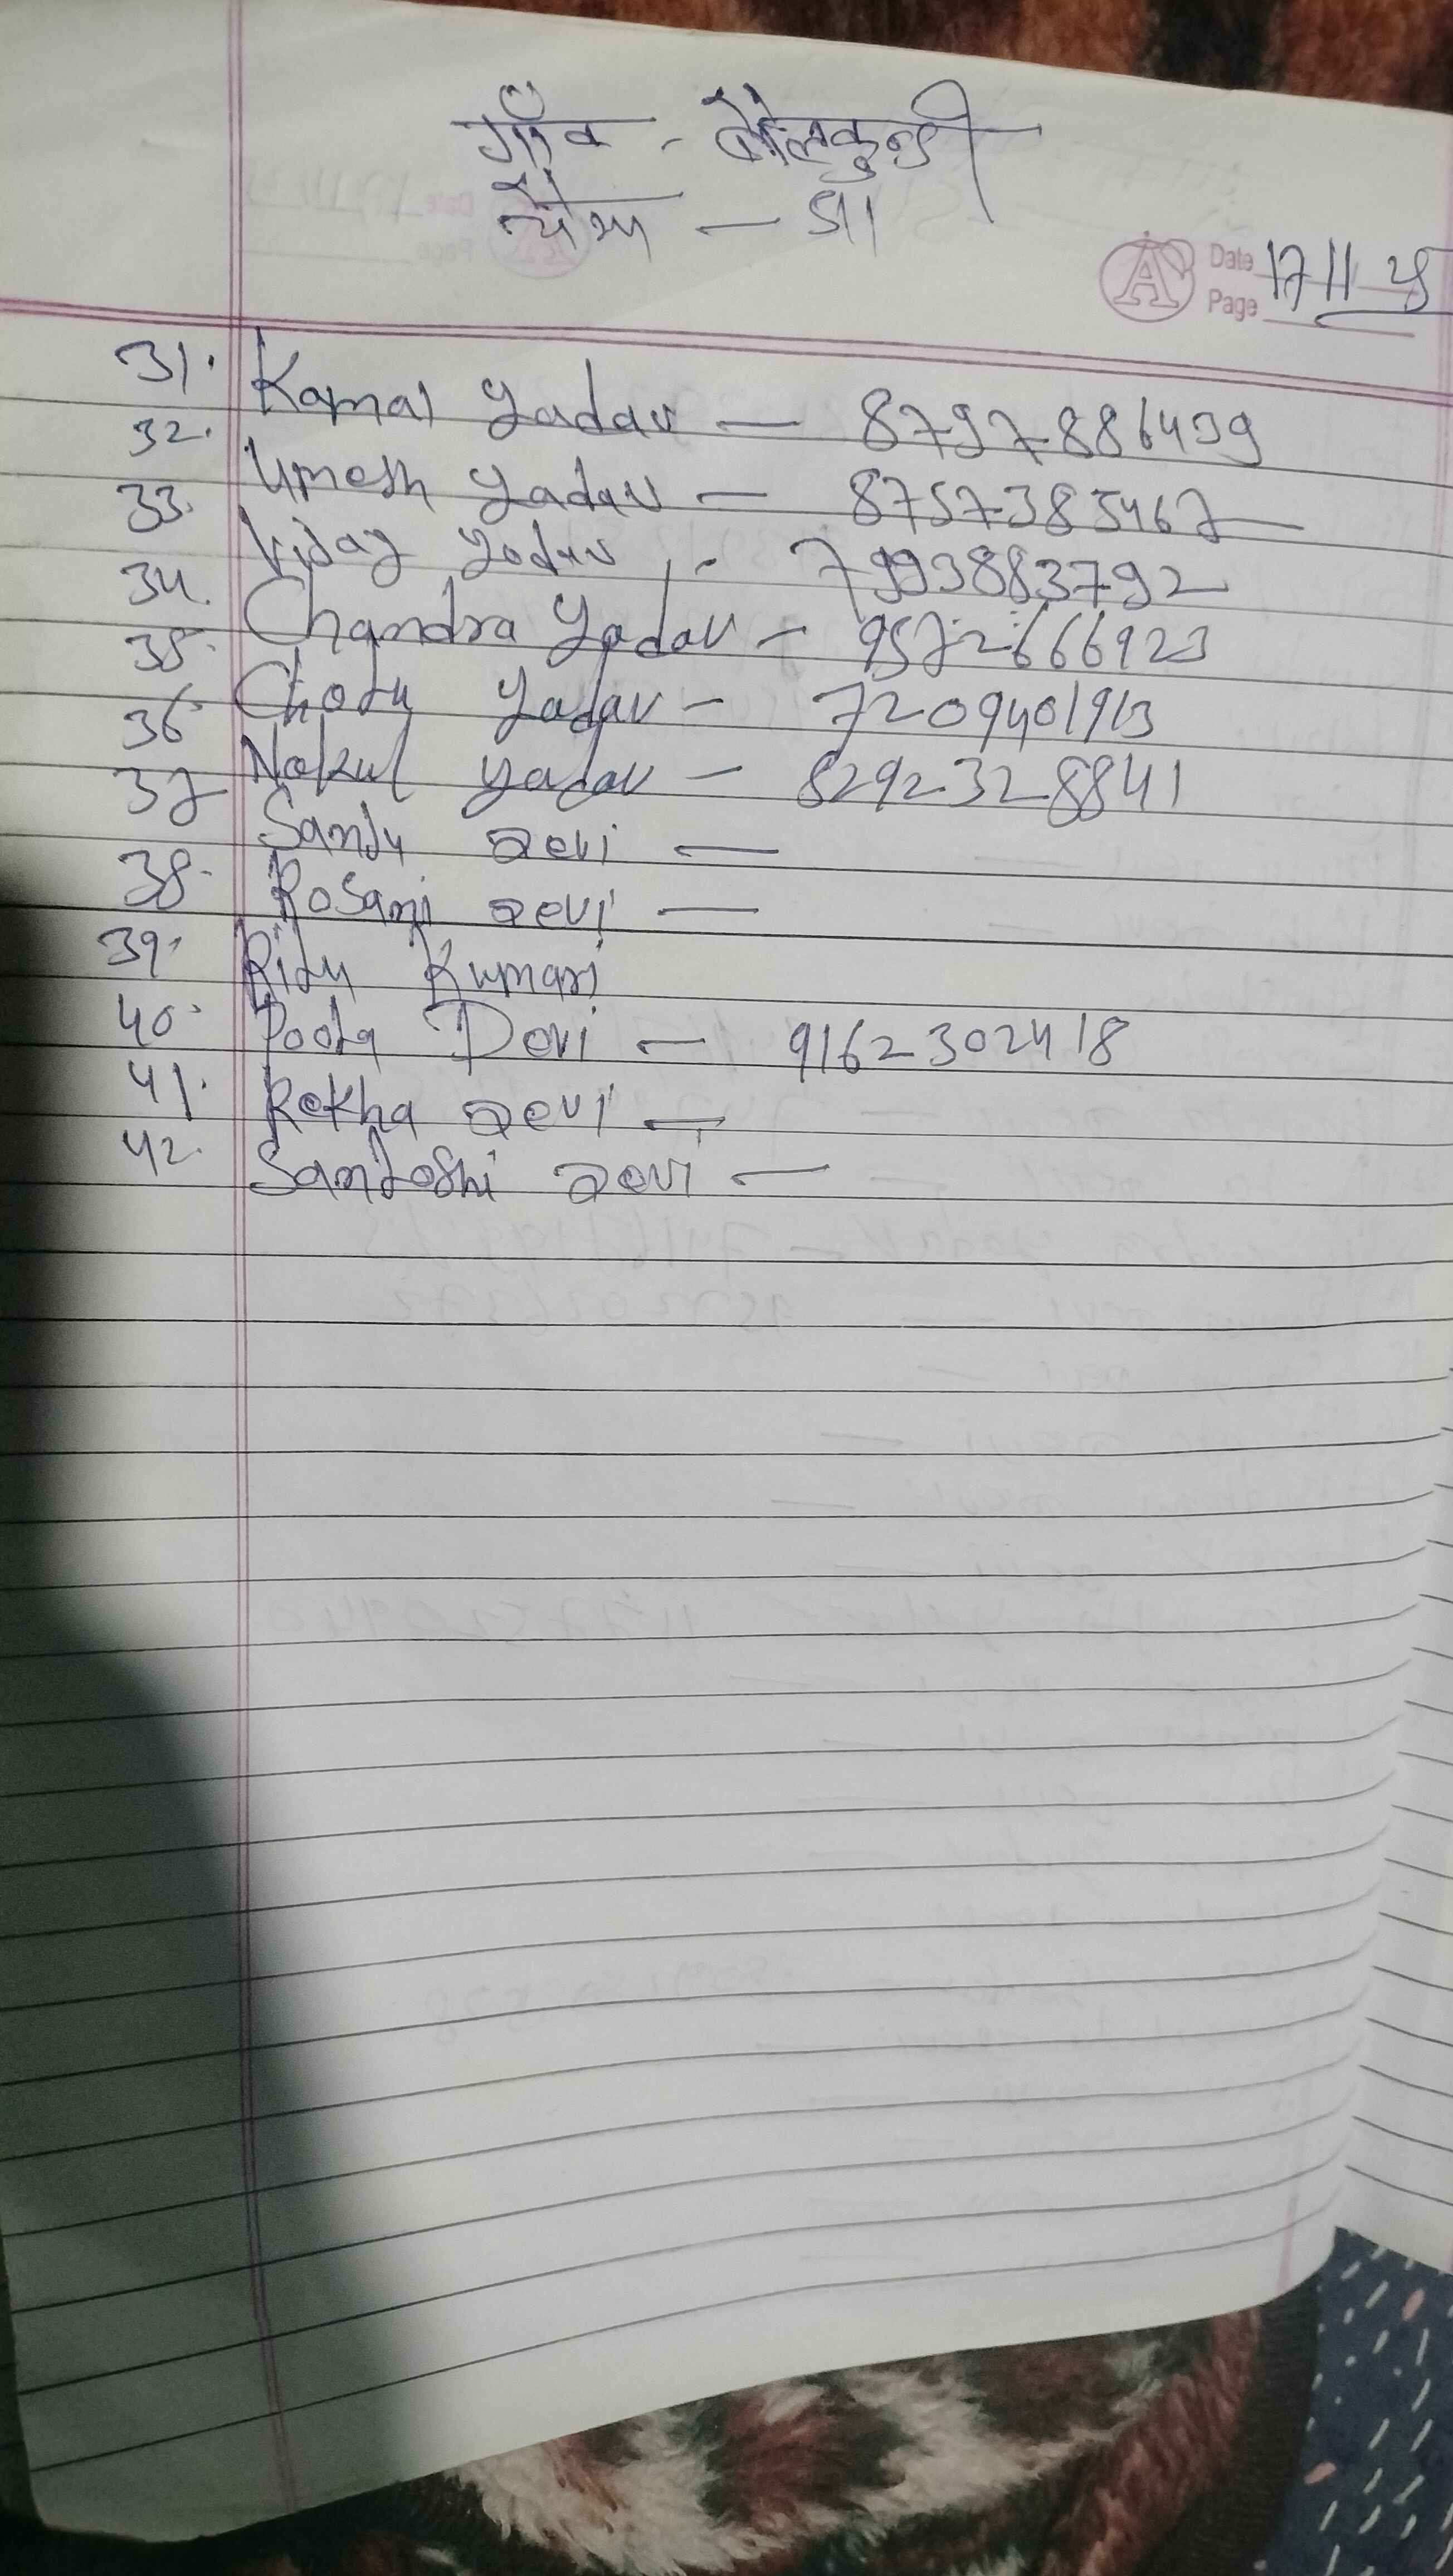 गाँव - बेलकुन्डी
Date 17 11 25
Page
31. Kamal Yadav — 8797886439
32. Umesh Yadav — 8757385467
33. Vijay Yadav - 7993883792
34. Chandra Yadav - 9572666923
35. Chotu Yadav - 7209401913
36. Nakul Yadav - 8292328841
37 Sanju Devi —
38. Rosani Devi —
39. Ritu Kumari
40. Pooja Devi — 9162302418
41. Rekha Devi —
42. Santoshi Devi —